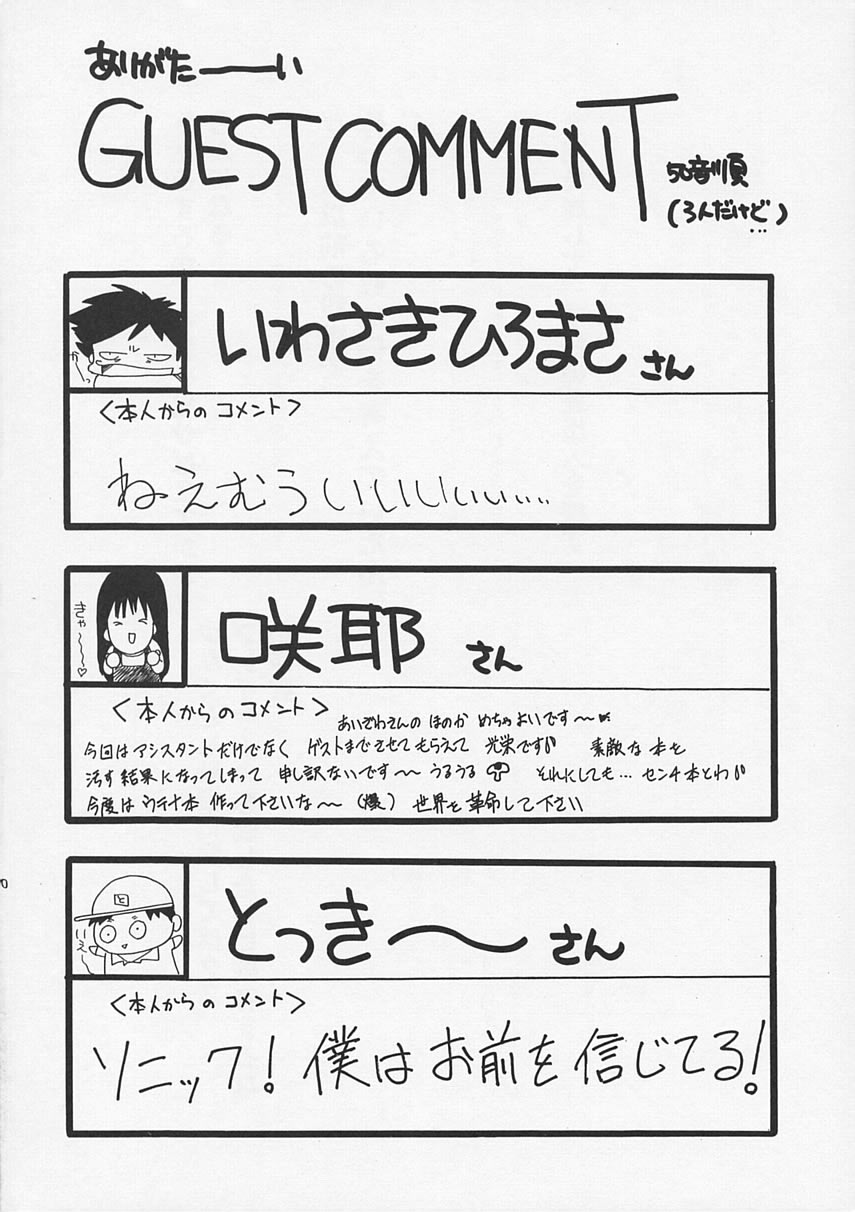 ありがたーーい
GUEST COMMENT
50音順
(3人だけど…)
いわさきひろまささん
かーっ
<本人からの コメント>
ねえむういいいいぃぃ...
咲耶 さん
きゃ〜〜〜♡
<本人からの コメント>
あいざわさんの ほのか めちゃよいです〜
今回はアシスタントだけでなく ゲストまでさせてもらえて 光栄です 素敵な本を
汚す結果になってしまって 申し訳ないです〜 うるうる それにしても… センチ本とわ
今度は ウテナ本 作って下さいな〜 (爆) 世界を革命して下さい
とっき〜 さん
と
いえ
<本人からの コメント>
ソニック! 僕はお前を信じてる!